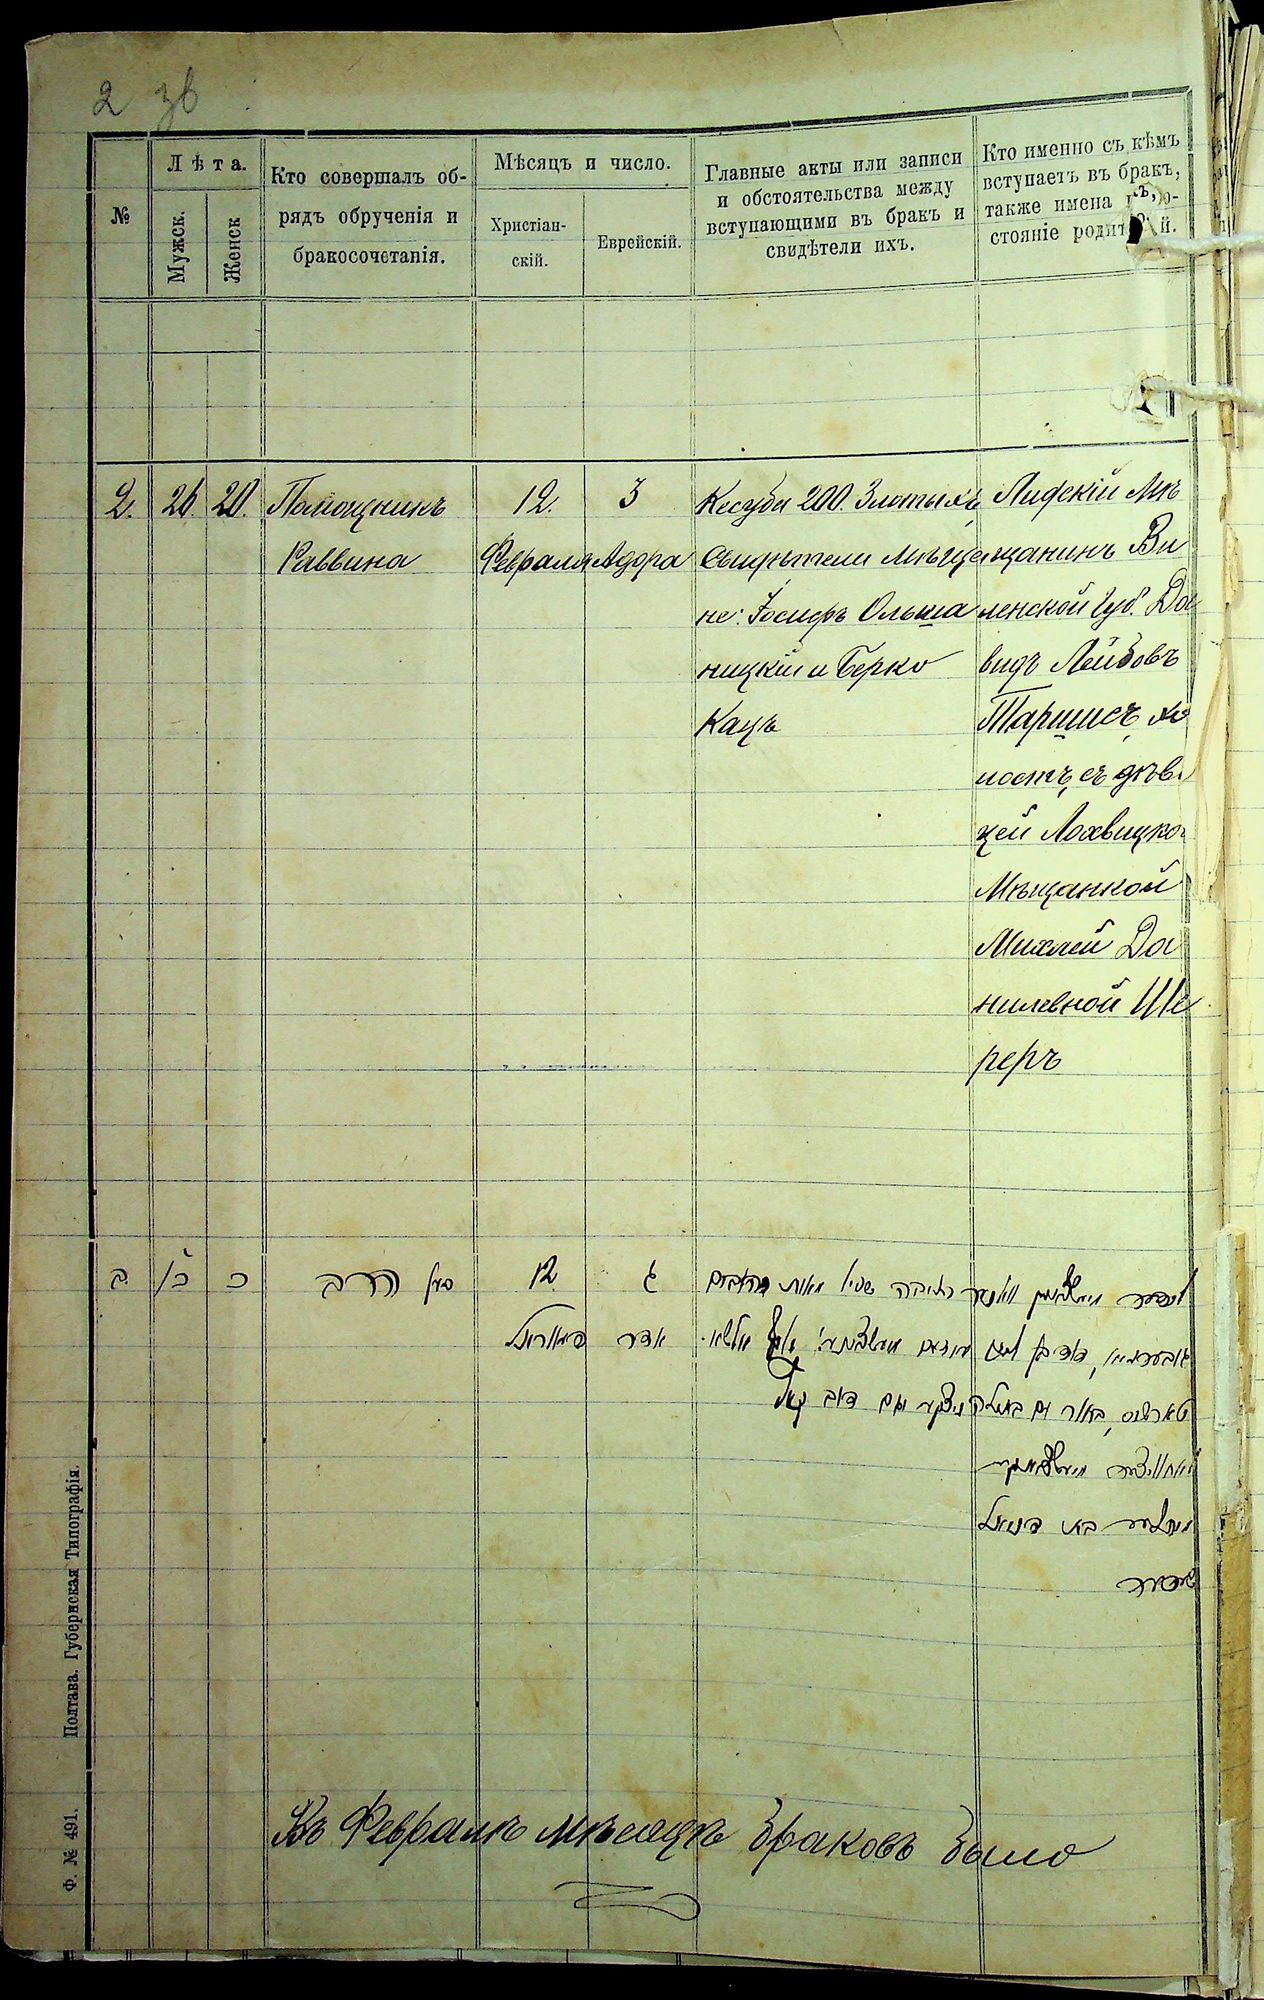 2 зв
№
Лѣта.
Мужск.
Женск
Кто совершалъ об-
рядъ обрученія и
бракосочетанія.
Мѣсяцъ и число.
Христіан-
скій.
Еврейскій.
Главные акты или записи
и обстоятельства между
вступающими въ бракъ и
свидѣтели ихъ.
Кто именно съ кѣмъ
вступаетъ въ бракъ,
также имена
стояніе
2.
26.
20.
Помощникъ
Раввина
12.
Февраля
3
Адора
Кесуба 200. Злотыхъ
Свидѣтели мѣща
не: Іосифъ Ольша
ницкій и Берко
Кацъ
Лидскій Мѣ
щанинъ Ви
ленской Губ. Да
видъ Лейбовъ
Таршисъ, хо
лостъ, съ дѣви
цей Лохвицкой
Мѣщанкой
Михлей Да
нилевной Ше
реръ
ב
כו
כ
סגן הרב
12
פעווראל
ג
אדר
כתובה
מאות זהובים
דוב קאץ
טארשיס, בחור עם בתולה
בת דניאל
שערער
Въ Февралѣ мѣсяцѣ браковъ было
Полтава. Губернская Типографія.
Ф. № 491.